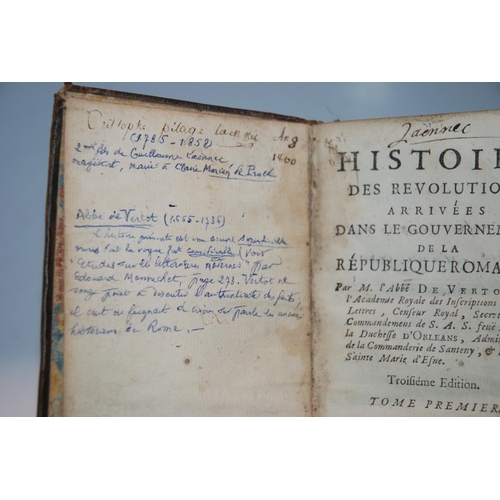 Christophe pilage Laennec Ang 3
(1785-1858) 1800
2ème fils de Guillaume Laënnec,
magistrat, marié à Claire
Abbé de Vertot (1655-1735)
L'histoire est une œuvre
mais dont la vogue fut considérable (Voir
"Etudes sur la littérature" par
Edouard page 273. Vertot ne
pas à l'authenticité des faits,
il croit ou feignait de croire sur parole les anciens
historiens de Rome. —
Laënnec
HISTOIRE
DES REVOLUTION
ARRIVÉES
DANS LE GOUVERNEM
DE LA
RÉPUBLIQUE ROMA
Par M. l'Abbé DE VERTO
l'Academie Royale des Inscriptions
Lettres, Censeur Royal, Secret
Commandemens de S. A. S. feuë
la Duchesse D'ORLEANS, Admi
de la Commanderie de Santeny, &
Sainte Marie d'Esne.
Troisiéme Edition.
TOME PREMIER